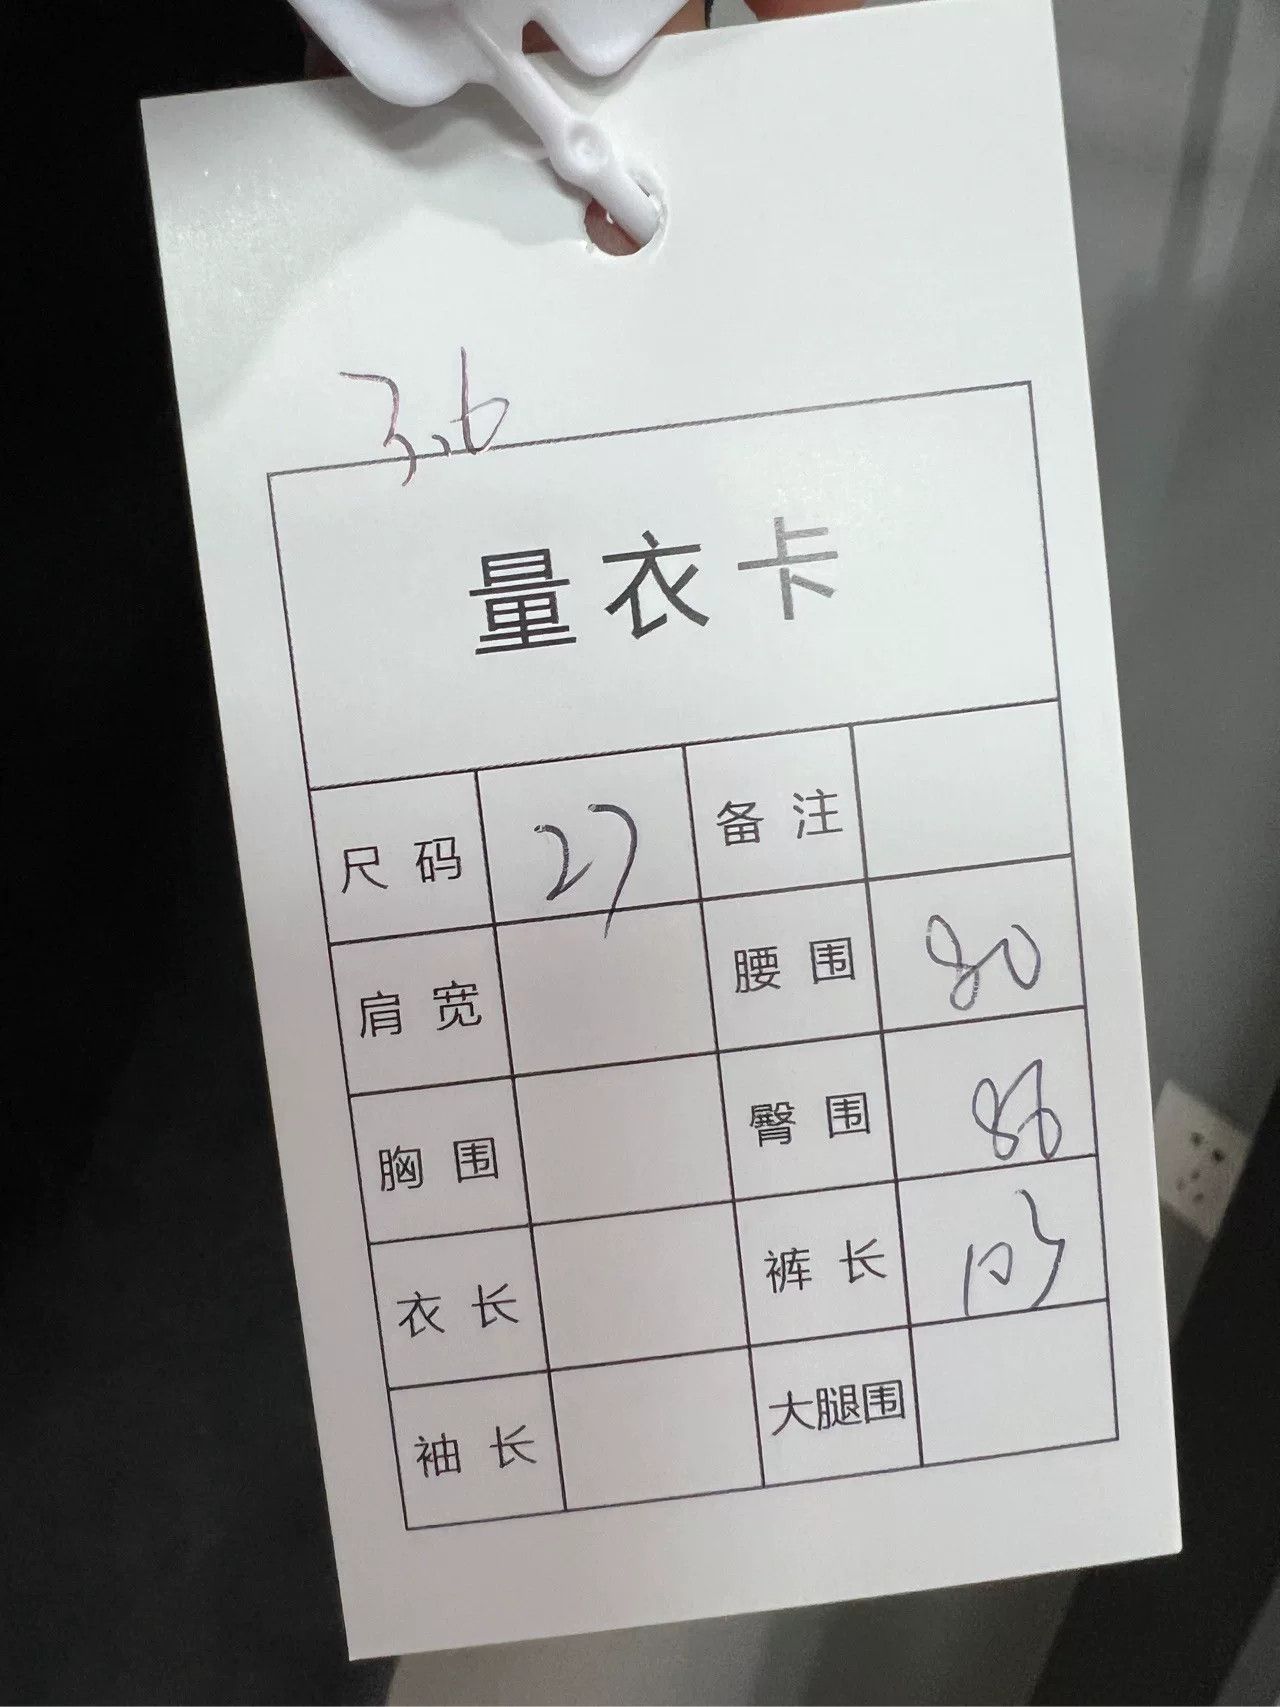 3.6
量衣卡
尺码 27 备注
肩宽 腰围 80
胸围 臀围 86
衣长 裤长 103
袖长 大腿围